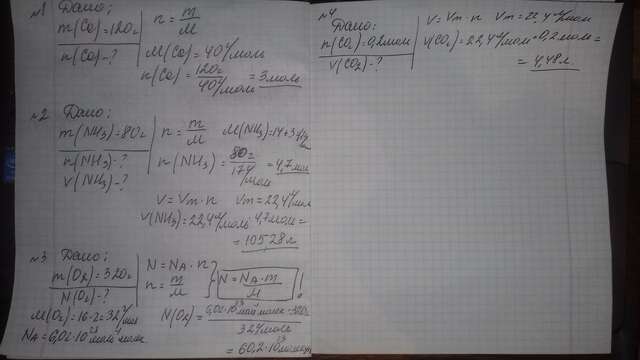 №1 Дано:
m(Ca)=120г
n(Ca)-?
n = m/M
M(Ca)=40г/моль
n(Ca)=120г/40г/моль=3моль
№2 Дано:
m(NH₃)=80г
n(NH₃)-?
V(NH₃)-?
n = m/M M(NH₃)=14+3
n(NH₃)=80г/17г/моль=4,7моль
V=Vm·n Vm=22,4л/моль
V(NH₃)=22,4л/моль·4,7моль=
=105,28л
№3 Дано:
m(O₂)=320г
N(O₂)-?
N=NA·n
n=m/M
N=NA·m/M !
M(O₂)=16·2=32г/моль
NA=6,02·10²³молекул/моль
N(O₂)=6,02·10²³молекул/моль·320г/32г/моль
=60,2·10²³молекул
№4
Дано:
n(CO₂)=0,2моль
V(CO₂)-?
V=Vm·n Vm=22,4л/моль
V(CO₂)=22,4л/моль·0,2моль=
=4,48л